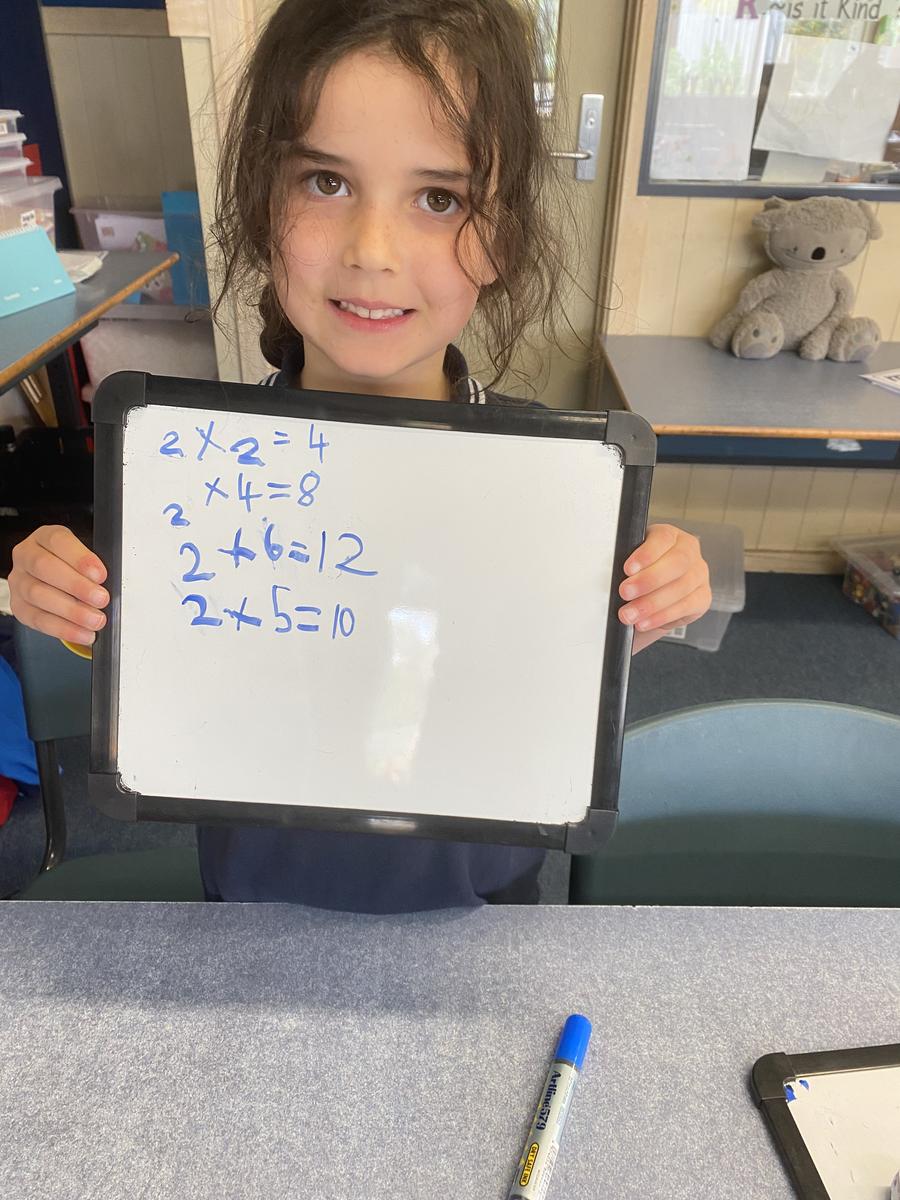 R is it Kind
2 × 2 = 4
2 × 4 = 8
2 × 6 = 12
2 × 5 = 10
Artline 579